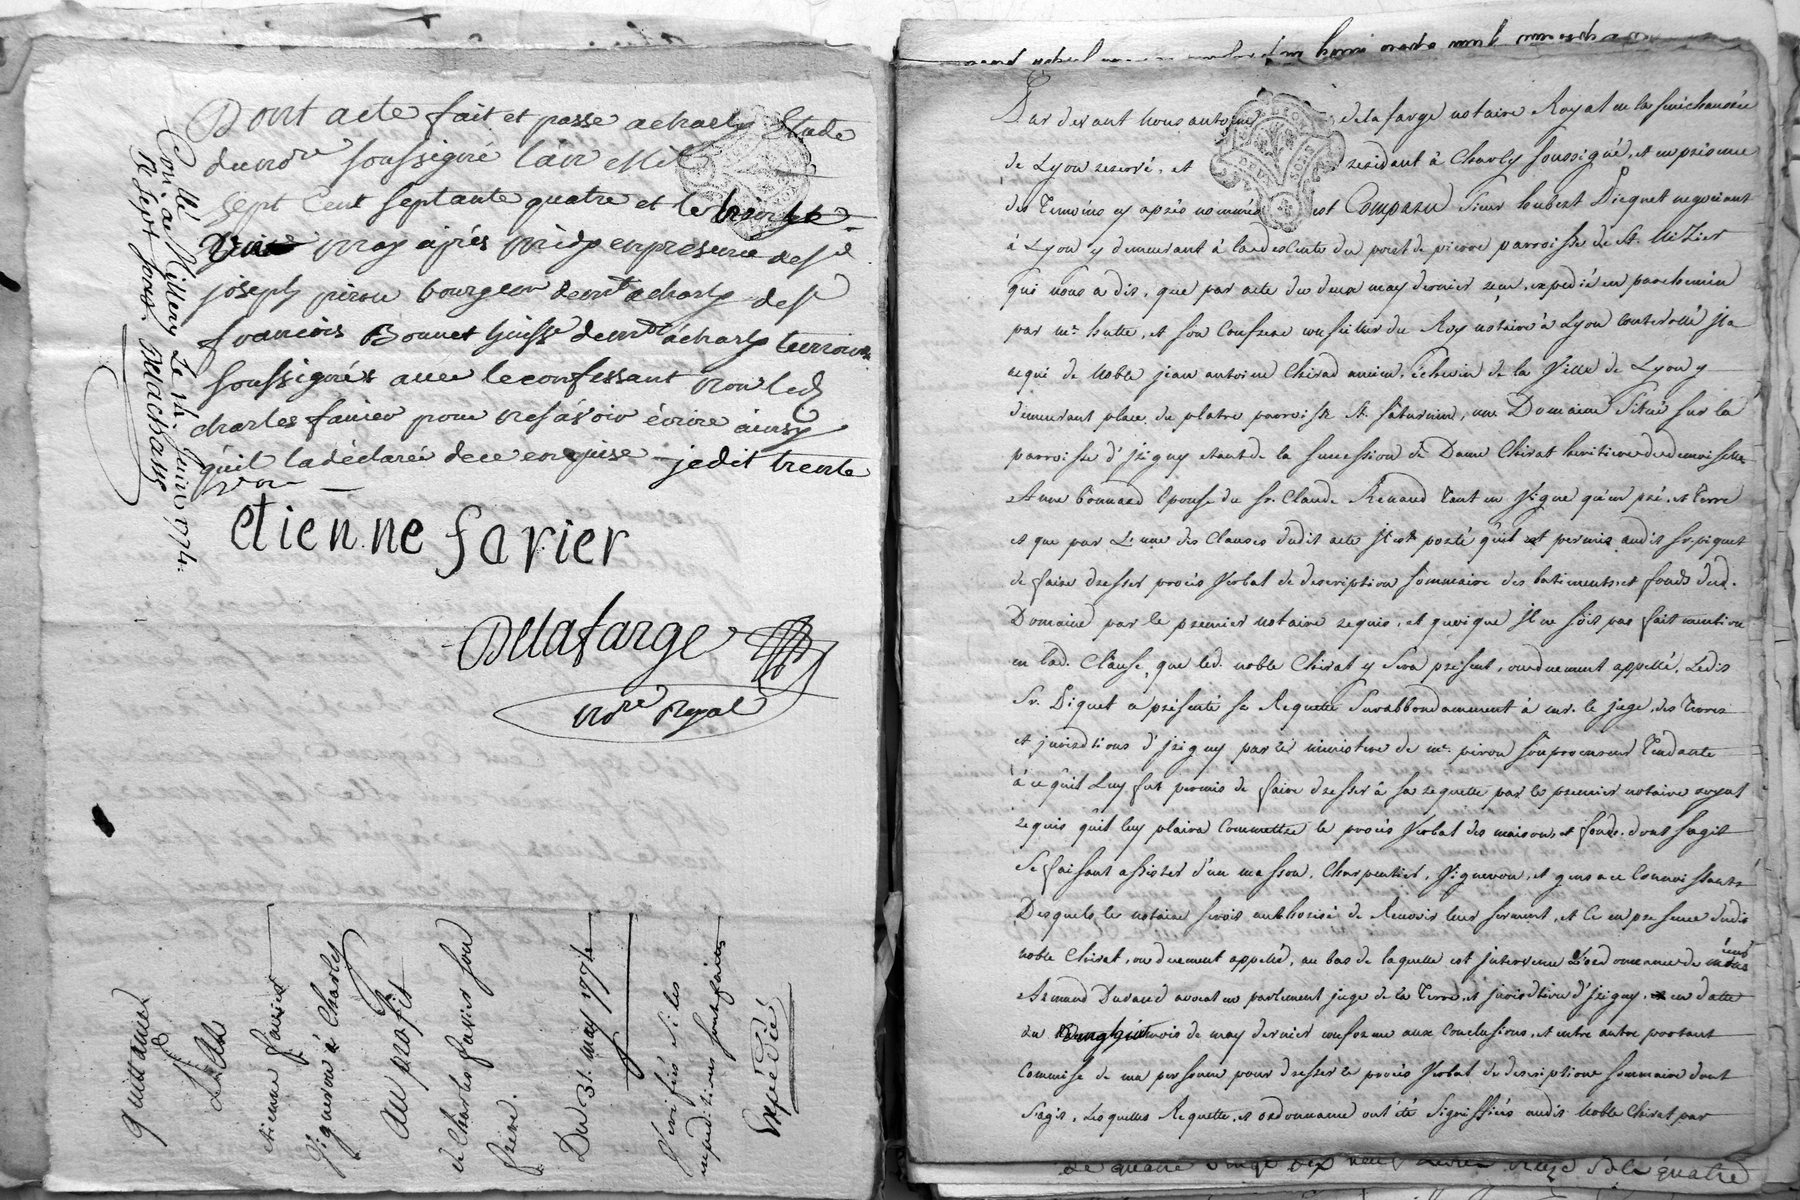 Dont acte fait et passé a charly Etude
du no.re soussigné l'an Mil
sept Cent septante quatre et le
may après midy en presence de s.r
joseph pirou bourgeois dem.t a charly de s.r
francois Bonnet huiss.r dem.t a charly temoins
soussignés avec le confessant non led.
charles favier pour ne sçavoir écrire ainsy
qu'il l'a déclaré de ce enquise je dit trente
etienne favier
Delafarge
no.re Royal
Con.lé a Millery Le 11 juin 1774.
Rt sept sous
quittance
etienne favier
Vigneron à Charly
au profit
de Charles favier son
frere.
Du 31. may 1774
Verifié si les
expeditions sont faites
Expedié
Par devant Nous antoine delafarge notaire Royal en la senechaussée
de Lyon reservé, et residant à Charly soussigné, et en presence
des Temoins cy après nommés est Comparu sieur hubert Picquet negociant
à Lyon y demeurant à la descente du pont de pierre parroisse de St. Nizier
qui nous a dit, que par acte du deux may dernier reçu, expedié en parchemin
par me. hutte, et son Confrere conseiller du Roy notaire à Lyon controllé Il a
acqui de Noble jean antoine Chirad ancien échevin de la Ville de Lyon y
demeurant place du platre parroisse St. Saturnin, un Domaine Situé sur la
parroisse d'Irigny etant de la succession de Dame Chirat heritiere de demoiselle
Anne Bonnard Epouse du Sr. Claude Renaud tant en Vigne qu'en pré, et Terre
et que par L'une des Clauses dudit acte Il est porté qu'il est permis audit Sr. piquet
de faire dresser procès Verbal de description sommaire des batiments et fonds dud.
Domaine par le premier notaire requis, et quoique Il ne soit pas fait mention
en lad. Clause, que led. noble Chirat y sera présent, ou duement appellé, Ledit
Sr. Piquet a présenté sa Requette surabbondamment à mr. le juge des Terres
et jurisdictions d'Irigny par le ministere de me. pirou son procureur Tendante
à ce qu'il Luy fut permis de faire dresser à sa requette par le premier notaire royal
requis qu'il luy plaira Commettre le procès Verbal des maison, et fonds dont s'agit
Se faisant assister d'un masson, Charpentier, Vigneron, et gens a ce Connoissants
Desquels le notaire seroit authorisé de Recevoir leur serment, et ce en presence dudit
noble Chirat, ou duement appellé, au bas de laquelle est intervenue L'ordonnance de
Armand Durand avocat en parlement juge de la Terre, et jurisdiction d'Irigny, en datte
du mois de may dernier conforme aux Conclusions, et entre autre portant
Commise de ma personne pour dresser le procès Verbal de description sommaire dont
s'agit, Lesquelles Requette, et ordonnance ont été signiffiées audit Noble Chirat par